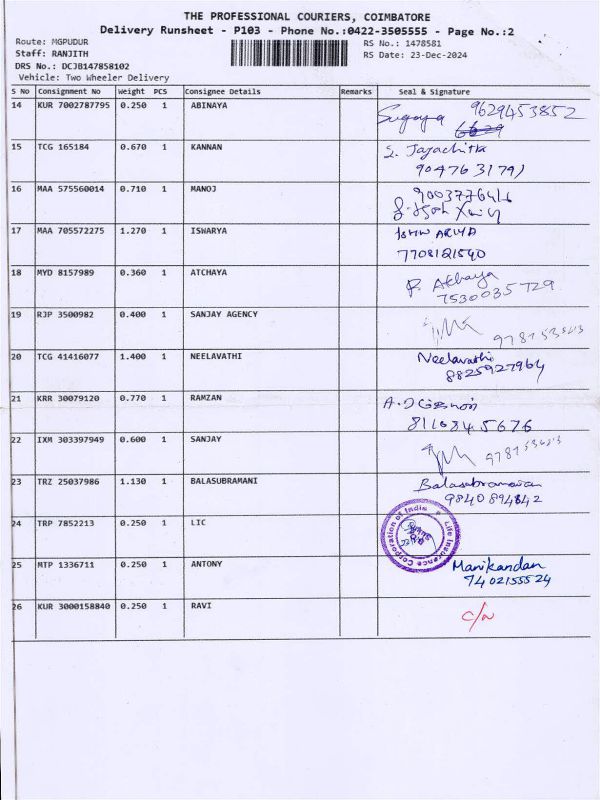 THE PROFESSIONAL COURIERS, COIMBATORE
Delivery Runsheet - P103 - Phone No.:0422-3505555 - Page No.:2
Route: MGPUDUR RS No.: 1478581
Staff: RANJITH RS Date: 23-Dec-2024
DRS No.: DCJB147858102
Vehicle: Two Wheeler Delivery
S No Consignment No Weight PCS Consignee Details Remarks Seal & Signature
14 KUR 7002787795 0.250 1 ABINAYA Sugaya 9629453852
15 TCG 165184 0.670 1 KANNAN S. Jayachitra
9047631791
16 MAA 575560014 0.710 1 MANOJ
17 MAA 705572275 1.270 1 ISWARYA ISHWARYA
7708121540
18 MYD 8157989 0.360 1 ATCHAYA P. Atchaya
7530035729
19 RJP 3500982 0.400 1 SANJAY AGENCY
20 TCG 41416077 1.400 1 NEELAVATHI Neelavathi
8825927964
21 KRR 30079120 0.770 1 RAMZAN
8116845676
22 IXM 303397949 0.600 1 SANJAY
23 TRZ 25037986 1.130 1 BALASUBRAMANI Balasubramanian
9840894842
24 TRP 7852213 0.250 1 LIC Life Insurance Corporation of India
25 MTP 1336711 0.250 1 ANTONY Manikandan
7402155524
26 KUR 3000158840 0.250 1 RAVI C/N